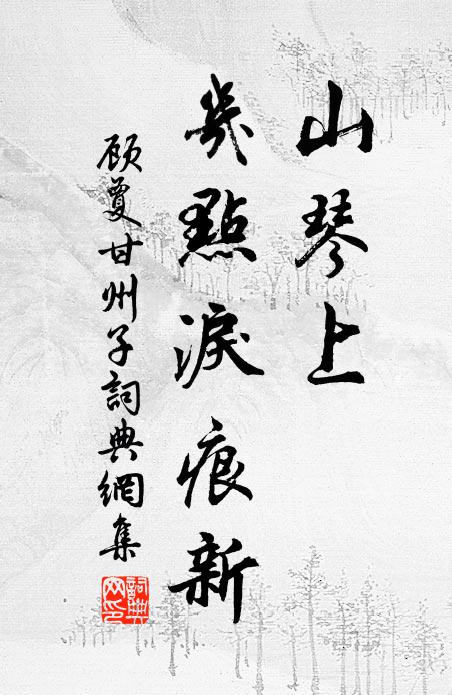 山琴上
幾點淚痕新
顾夐甘州子詞典網集
詞典網印